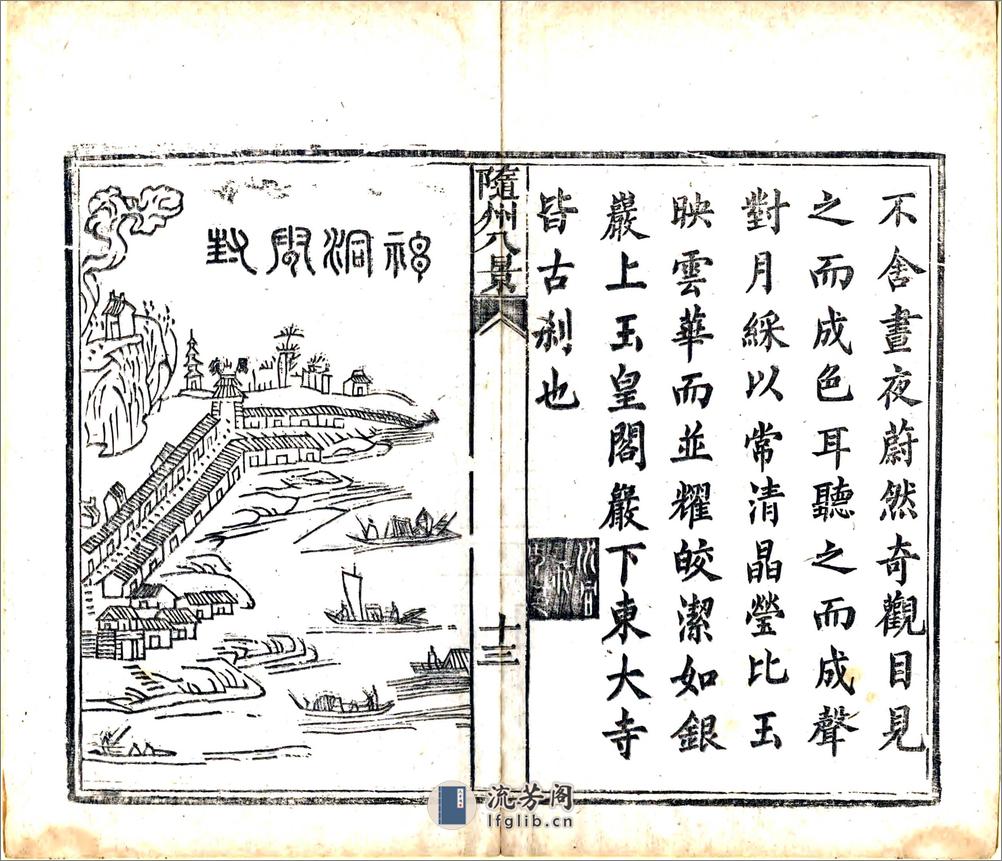 不舍晝夜蔚然奇觀目見
之而成色耳聽之而成聲
對月綵以常清晶瑩比玉
映雲華而並耀皎潔如銀
巖上玉皇閣巖下東大寺
皆古刹也
隨州八景
十三
神洞
流芳阁
lfglib.cn